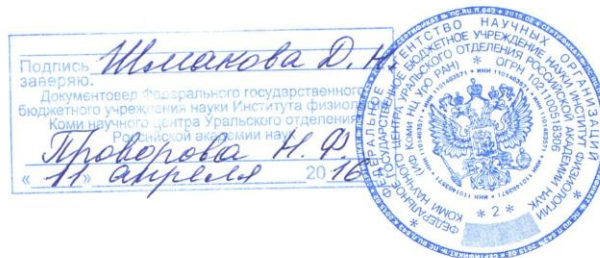 Подпись Шмакова Д. Н.
заверяю.
Документовед Федерального государственного
бюджетного учреждения науки Института физиологии
Коми научного центра Уральского отделения
Российской академии наук
Проворова Н. Ф.
« 11 » апреля 20 16
ФЕДЕРАЛЬНОЕ АГЕНТСТВО НАУЧНЫХ ОРГАНИЗАЦИЙ
ФЕДЕРАЛЬНОЕ ГОСУДАРСТВЕННОЕ БЮДЖЕТНОЕ УЧРЕЖДЕНИЕ НАУКИ ИНСТИТУТ ФИЗИОЛОГИИ
КОМИ НАУЧНОГО ЦЕНТРА УРАЛЬСКОГО ОТДЕЛЕНИЯ РОССИЙСКОЙ АКАДЕМИИ НАУК
(ИФ Коми НЦ УрО РАН) * ОГРН
* 2 *